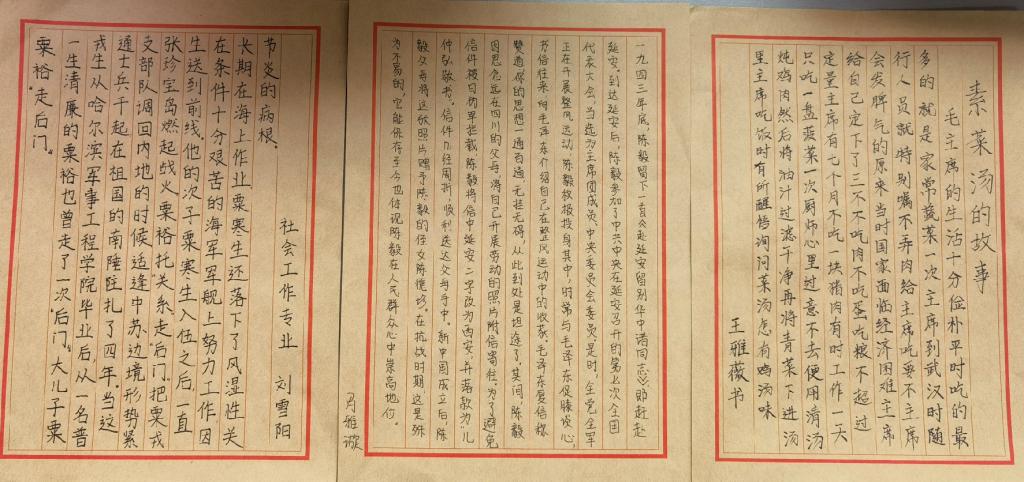 素菜汤的故事
毛主席的生活十分俭朴平时吃的最
多的就是家常蔬菜一次主席到武汉时随
行人员就特别嘱不弄肉给主席吃要不主席
会发脾气的原来当时国家面临经济困难主席
给自己定下了三不不吃肉不吃蛋吃粮不超过
定量主席有七个月不吃一块猪肉有时工作一天
只吃一盘菠菜一次厨师心里过意不去便用清汤
炖鸡肉然后将油汁过滤干净再将青菜下进汤
里主席吃饭时有所醒悟询问菜汤怎有鸡汤味
王雅薇书
一九四三年底,陈毅留下一首《赴延安留别华中诸同志》,即赶赴
延安。到达延安后,陈毅参加了中共中央在延安召开的第七次全国
代表大会,当选为主席团成员、中央委员会委员。是时,全党全军
正在开展整风运动,陈毅积极投身其中,时常与毛泽东促膝谈心,
书信往来,向毛泽东介绍自己在整风运动中的收获。毛泽东复信称
赞道:你的思想一通百通,无挂无碍,从此到处是坦途了。其间,陈毅
因思念远在四川的父母,将自己开展劳动的照片附信寄往。为了避免
信件被日伪军拦截,陈毅将信中延安二字改为西安,并落款为“儿
仲弘敬书”。信件几经周折,顺利送达父母手中。新中国成立后,陈
毅父母将这张照片赠予陈毅的侄女陈德琦。在抗战时期,这是殊
为不易的,它能保存至今也体现陈毅在人民群众心中崇高地位。
月雅璇
粟裕“走后门”。
一生清廉的粟裕也曾走了一次“后门”。大儿子粟
戎生从哈尔滨军事工程学院毕业后,从一名普
通士兵干起在祖国的南陲驻扎了四年。当这
支部队调回内地的时候适逢中苏边境形势紧
张珍宝岛燃起战火粟裕托关系走后门把粟戎
生送到前线。他的次子粟寒生入伍之后,一直
在条件十分艰苦的海军军舰上努力工作,因
长期在海上作业粟寒生还落下了风湿性关
节炎的病根。
社会工作专业 刘雪阳